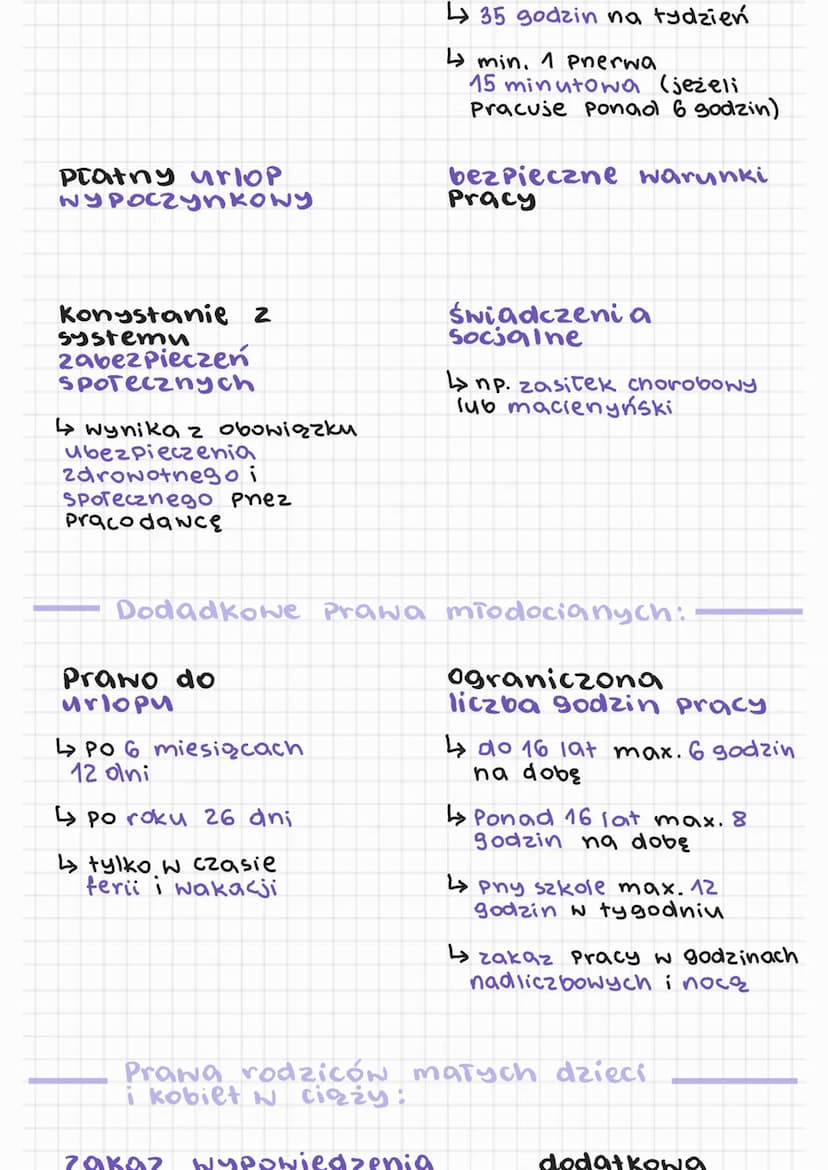 ↳ 35 godzin na tydzień
↳ min. 1 przerwa
15 minutowa (jeżeli
pracuje ponad 6 godzin)
płatny urlop
wypoczynkowy
bezpieczne warunki
pracy
Korzystanie z
systemu
zabezpieczeń
społecznych
↳ wynika z obowiązku
ubezpieczenia
zdrowotnego i
społecznego przez
pracodawcę
świadczenia
socjalne
↳ np. zasiłek chorobowy
lub macierzyński
Dodadkowe prawa młodocianych:
Prawo do
urlopu
↳ po 6 miesiącach
12 dni
↳ po roku 26 dni
↳ tylko w czasie
ferii i wakacji
ograniczona
liczba godzin pracy
↳ do 16 lat max. 6 godzin
na dobę
↳ Ponad 16 lat max. 8
godzin na dobę
↳ przy szkole max. 12
godzin w tygodniu
↳ zakaz pracy w godzinach
nadliczbowych i nocą
Prawa rodziców małych dzieci
i kobiet w ciąży:
zakaz wypowiedzenia
dodatkowa